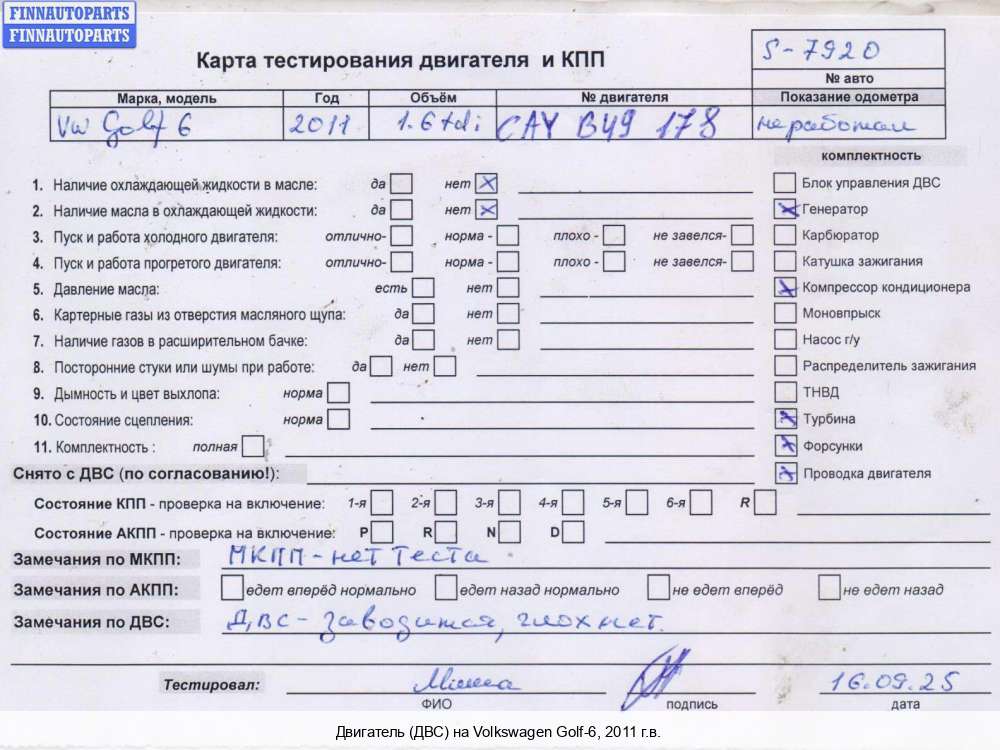 FINNAUTOPARTS
FINNAUTOPARTS
Карта тестирования двигателя и КПП
S-7920
№ авто
Марка, модель Год Объём № двигателя Показание одометра
VW Golf 6 2011 1.6 tdi CAY B49 178 не работал
комплектность
1. Наличие охлаждающей жидкости в масле: да нет Блок управления ДВС
2. Наличие масла в охлаждающей жидкости: да нет Генератор
3. Пуск и работа холодного двигателя: отлично- норма - плохо - не завелся- Карбюратор
4. Пуск и работа прогретого двигателя: отлично- норма - плохо - не завелся- Катушка зажигания
5. Давление масла: есть нет Компрессор кондиционера
6. Картерные газы из отверстия масляного щупа: да нет Моновпрыск
7. Наличие газов в расширительном бачке: да нет Насос г/у
8. Посторонние стуки или шумы при работе: да нет Распределитель зажигания
9. Дымность и цвет выхлопа: норма ТНВД
10. Состояние сцепления: норма Турбина
11. Комплектность : полная Форсунки
Снято с ДВС (по согласованию!): Проводка двигателя
Состояние КПП - проверка на включение: 1-я 2-я 3-я 4-я 5-я 6-я R
Состояние АКПП - проверка на включение: P R N D
Замечания по МКПП: МКПП - нет теста
Замечания по АКПП: едет вперёд нормально едет назад нормально не едет вперёд не едет назад
Замечания по ДВС: ДВС - заводится, глохнет.
Тестировал: Миша 16.09.25
ФИО подпись дата
Двигатель (ДВС) на Volkswagen Golf-6, 2011 г.в.